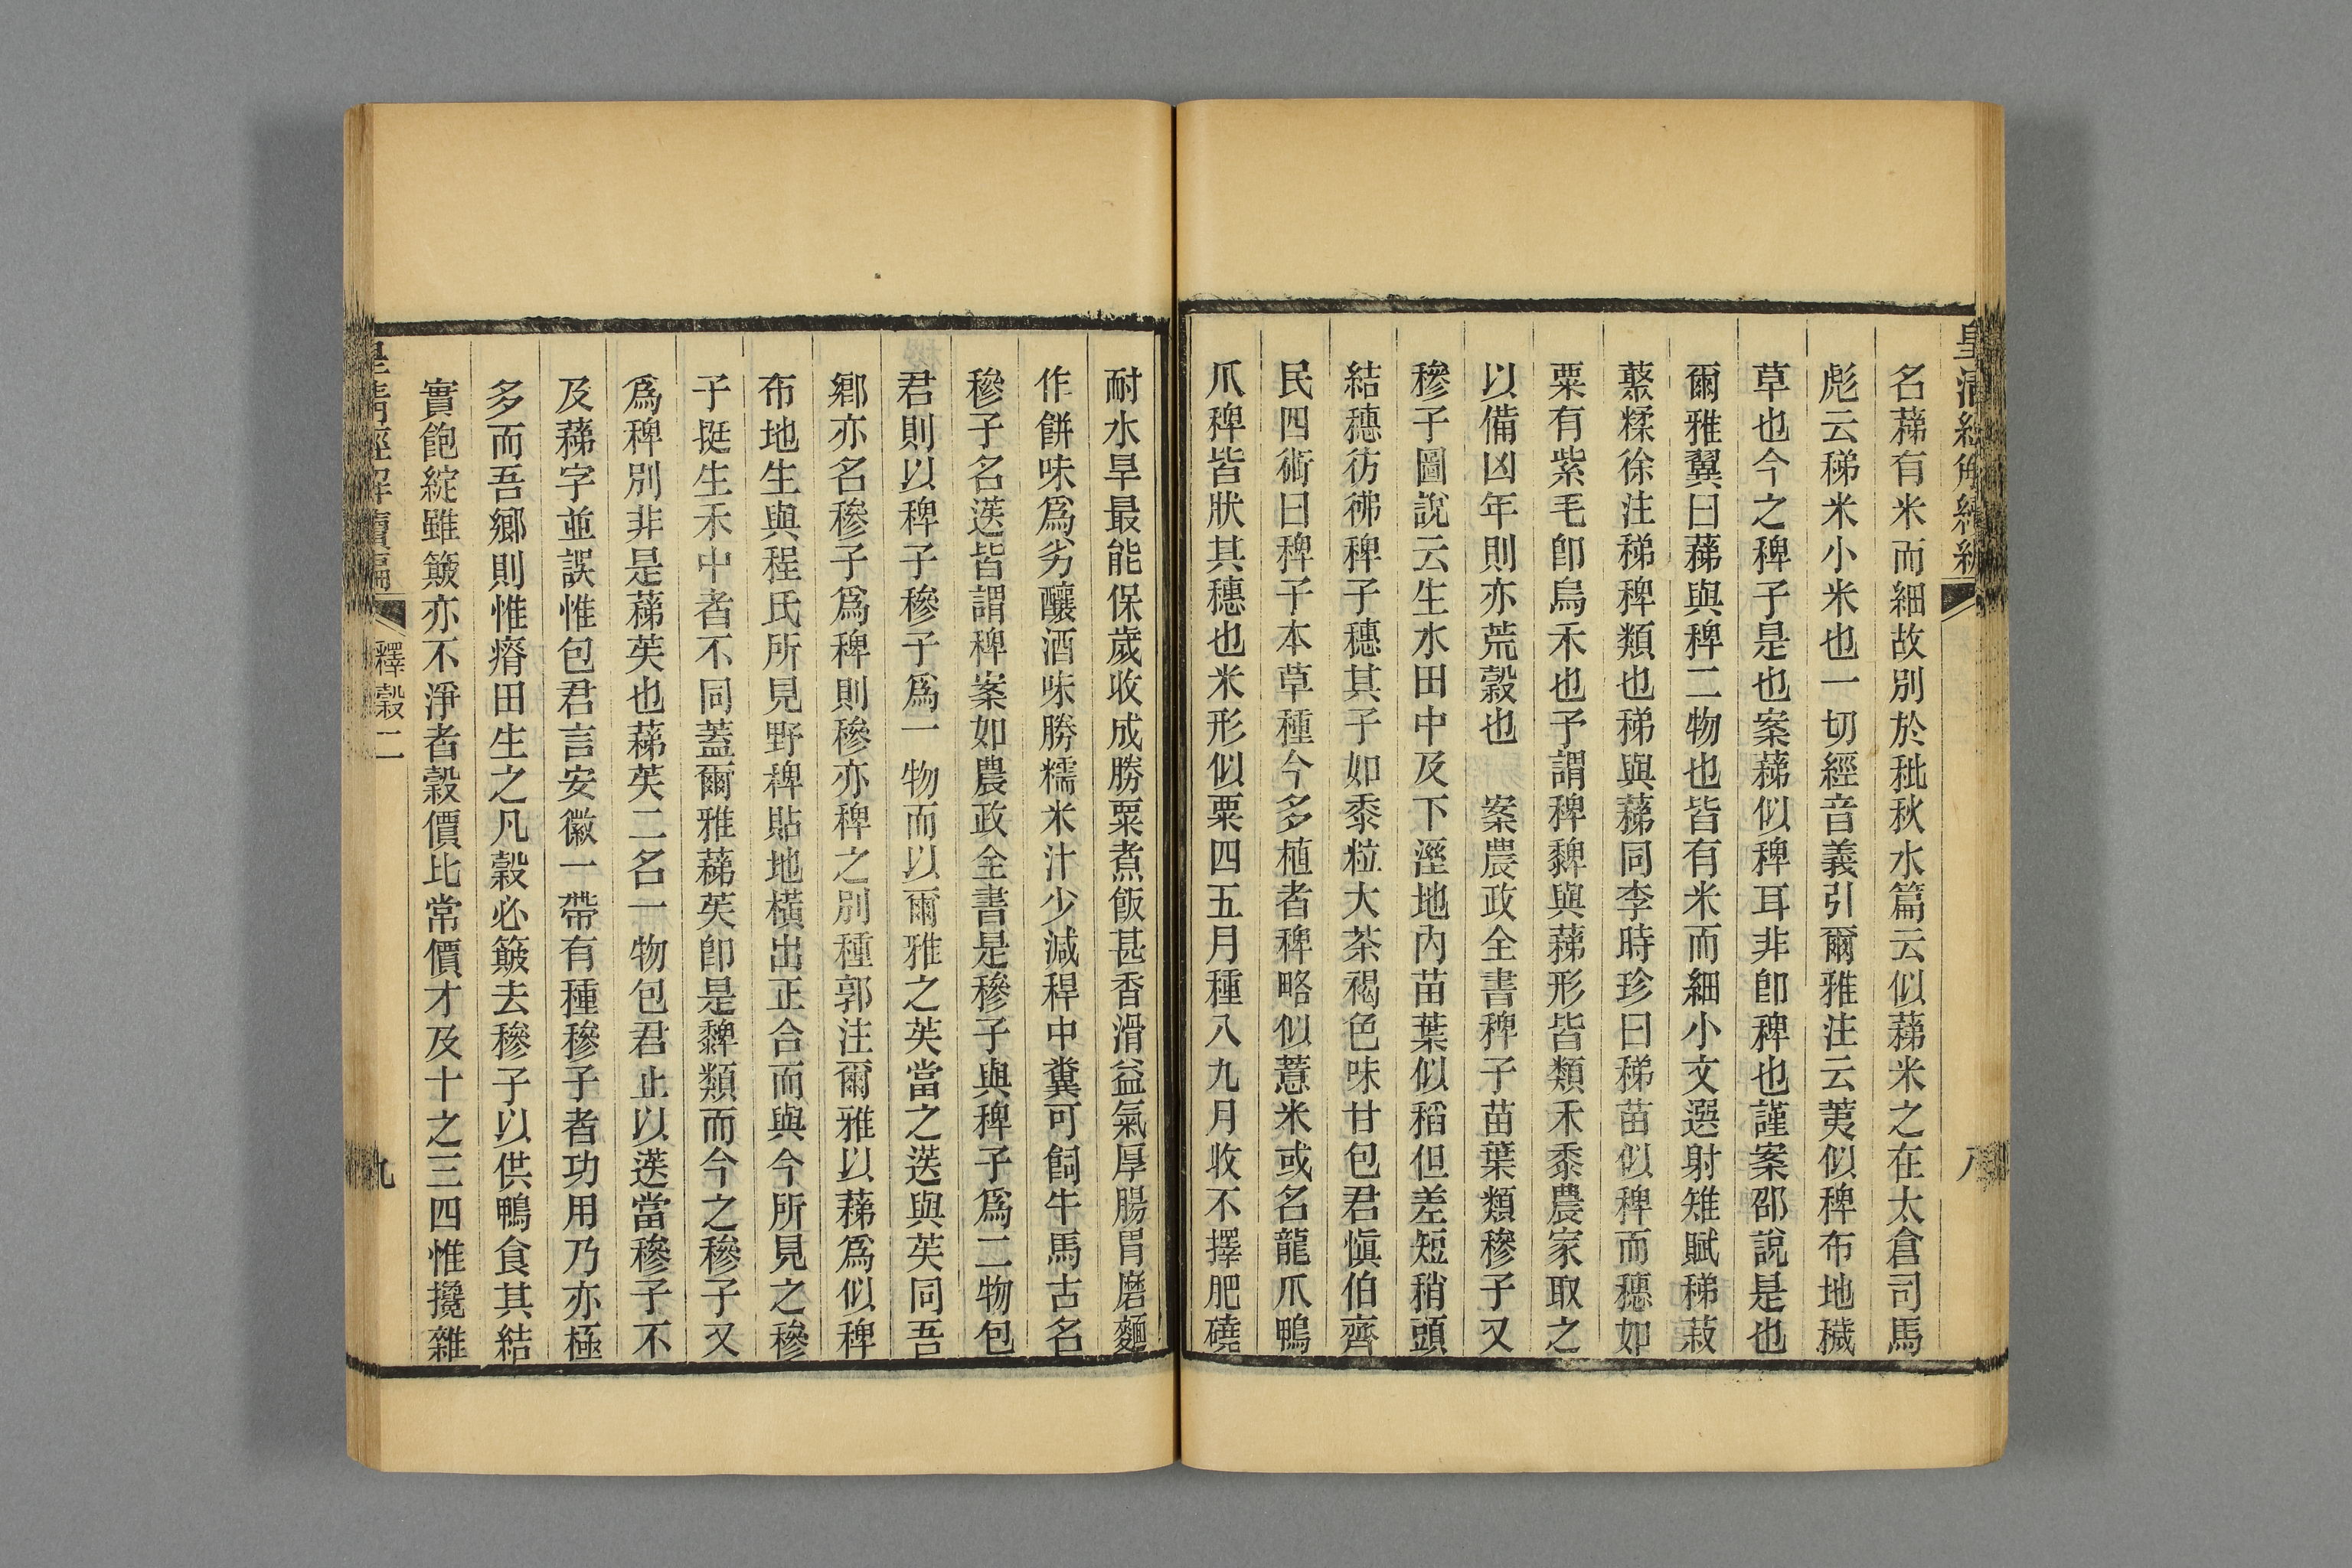 皇清經解續編
八
名蕛有米而細故別於秕秋水篇云似蕛米之在太倉司馬
彪云稊米小米也一切經音義引爾雅注云荑似稗布地穢
草也今之稗子是也案蕛似稗耳非卽稗也謹案邵說是也
爾雅翼曰蕛與稗二物也皆有米而細小文選射雉賦稊菽
藂糅徐注稊稗類也稊與蕛同李時珍曰稊苗似稗而穗如
粟有紫毛卽烏禾也予謂稗䅟與蕛形皆類禾黍農家取之
以備凶年則亦荒穀也　案農政全書稗子苗葉類穇子又
穇子圖說云生水田中及下溼地內苗葉似稻但差短稍頭
結穗彷彿稗子穗其子如黍粒大茶褐色味甘包君愼伯齊
民四術曰稗子本草種今多植者稗略似薏米或名龍爪鴨
爪稗皆狀其穗也米形似粟四五月種八九月收不擇肥磽
耐水旱最能保歲收成勝粟煮飯甚香滑益氣厚腸胃磨麵
作餅味爲劣釀酒味勝糯米汁少減稈中糞可飼牛馬古名
穇子名蒁皆謂稗案如農政全書是穇子與稗子爲二物包
君則以稗子穇子爲一物而以爾雅之英當之蒁與英同吾
鄉亦名穇子爲稗則穇亦稗之別種郭注爾雅以蕛爲似稗
布地生與程氏所見野稗貼地橫出正合而與今所見之穇
子挺生禾中者不同蓋爾雅蕛英卽是䅟類而今之穇子又
爲稗別非是蕛英也蕛英二名一物包君止以蒁當穇子不
及蕛字並誤惟包君言安徽一帶有種穇子者功用乃亦極
多而吾鄉則惟瘠田生之凡穀必簸去穇子以供鴨食其結
實飽綻雖簸亦不淨者穀價比常價才及十之三四惟攙雜
皇清經解續編
釋穀二
九